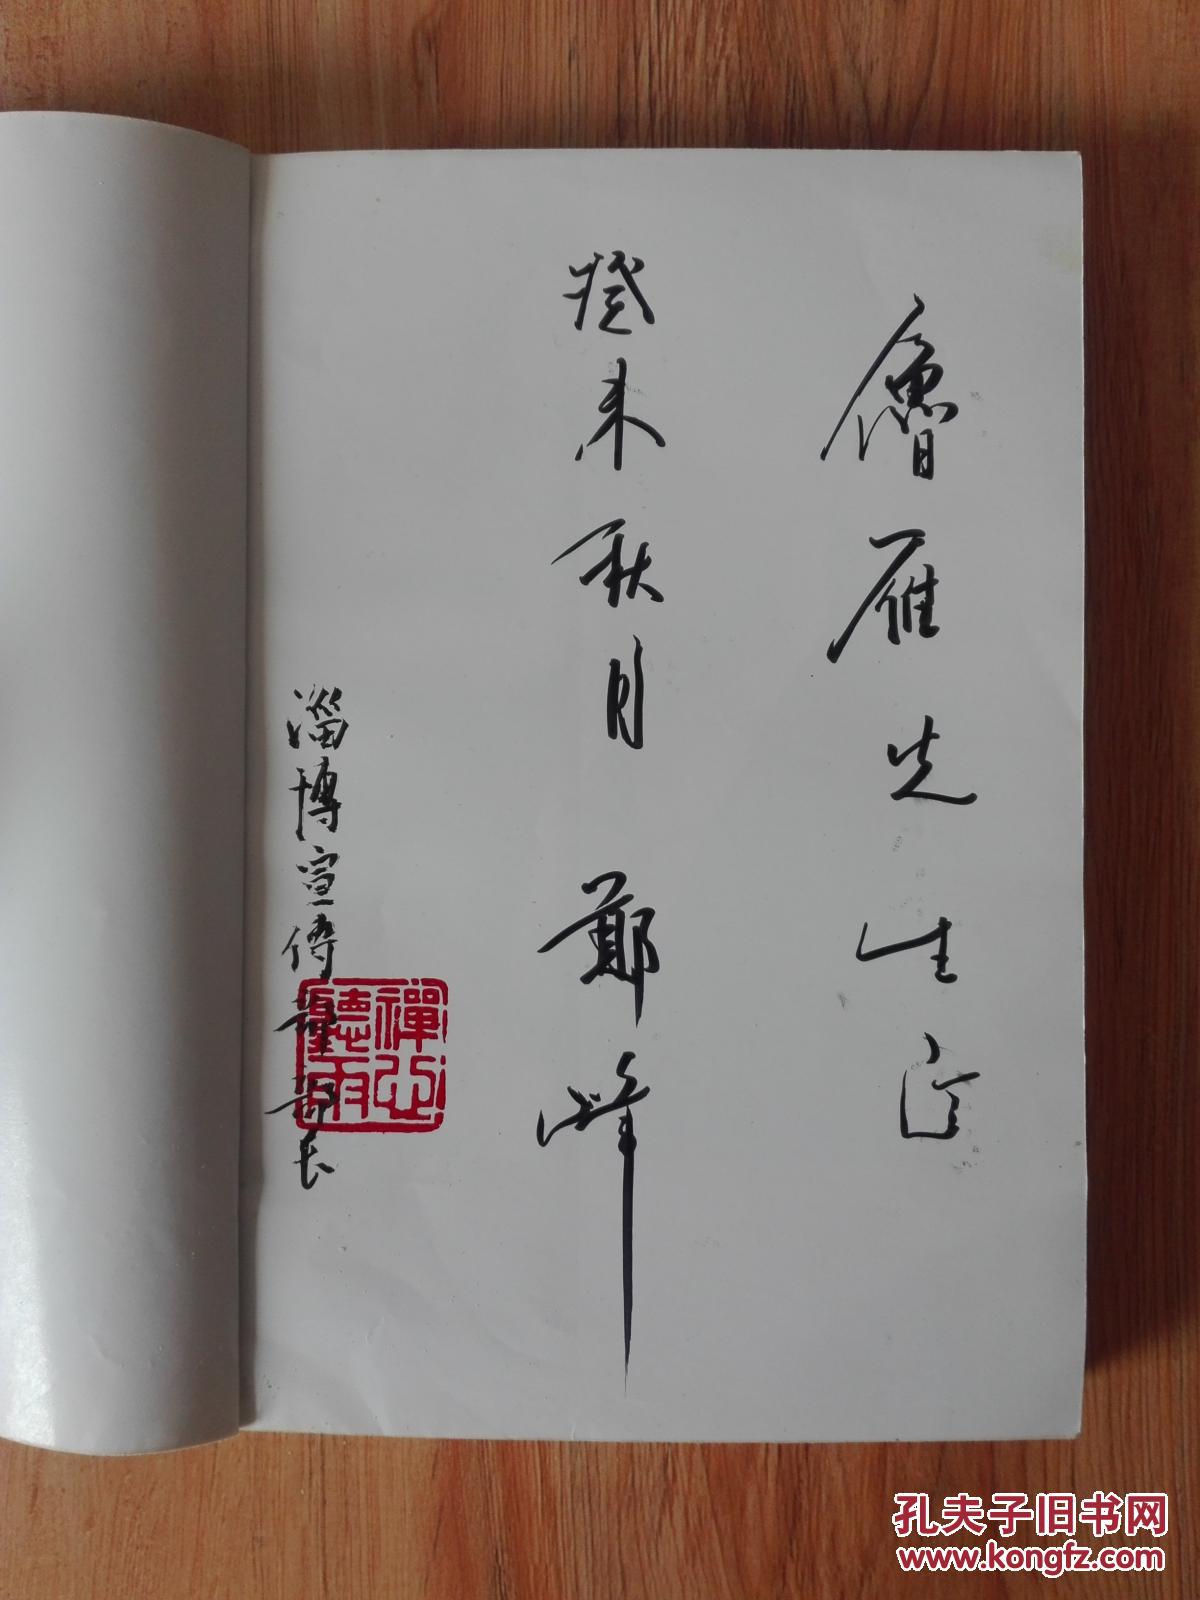 魯雁先生正
癸未秋月 鄭峰
淄博宣傳
部长
禪心
聽雨
孔夫子旧书网
www.kongfz.com